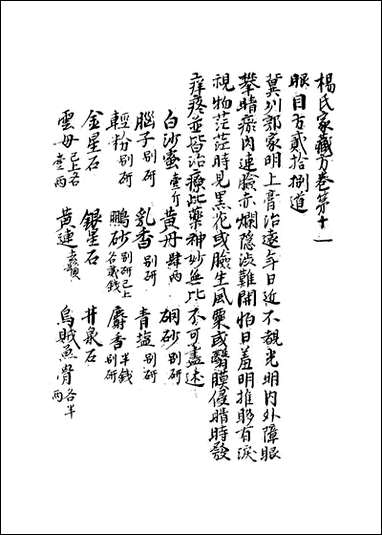 楊氏家藏方卷第十一
眼目百貳拾捌道
冀州郭家明上膏治遠年日近不覩光明内外障眼
攀睛瘀肉連瞼赤爛隠澁難開怕日羞明推眵有淚
視物茫茫時見黑花或瞼生風粟或翳膜侵睛時發
痒疼並皆治療此藥神妙無比不可盡述
白沙蜜壹斤 黄丹肆兩 硇砂别研
腦子别研 乳香别研 青塩别研
輕粉别研 鵬砂别研已上各貳錢 麝香半錢别研
金星石 銀星石 井泉石
雲母已上各壹兩 黄連去鬚 烏賊魚骨各半兩